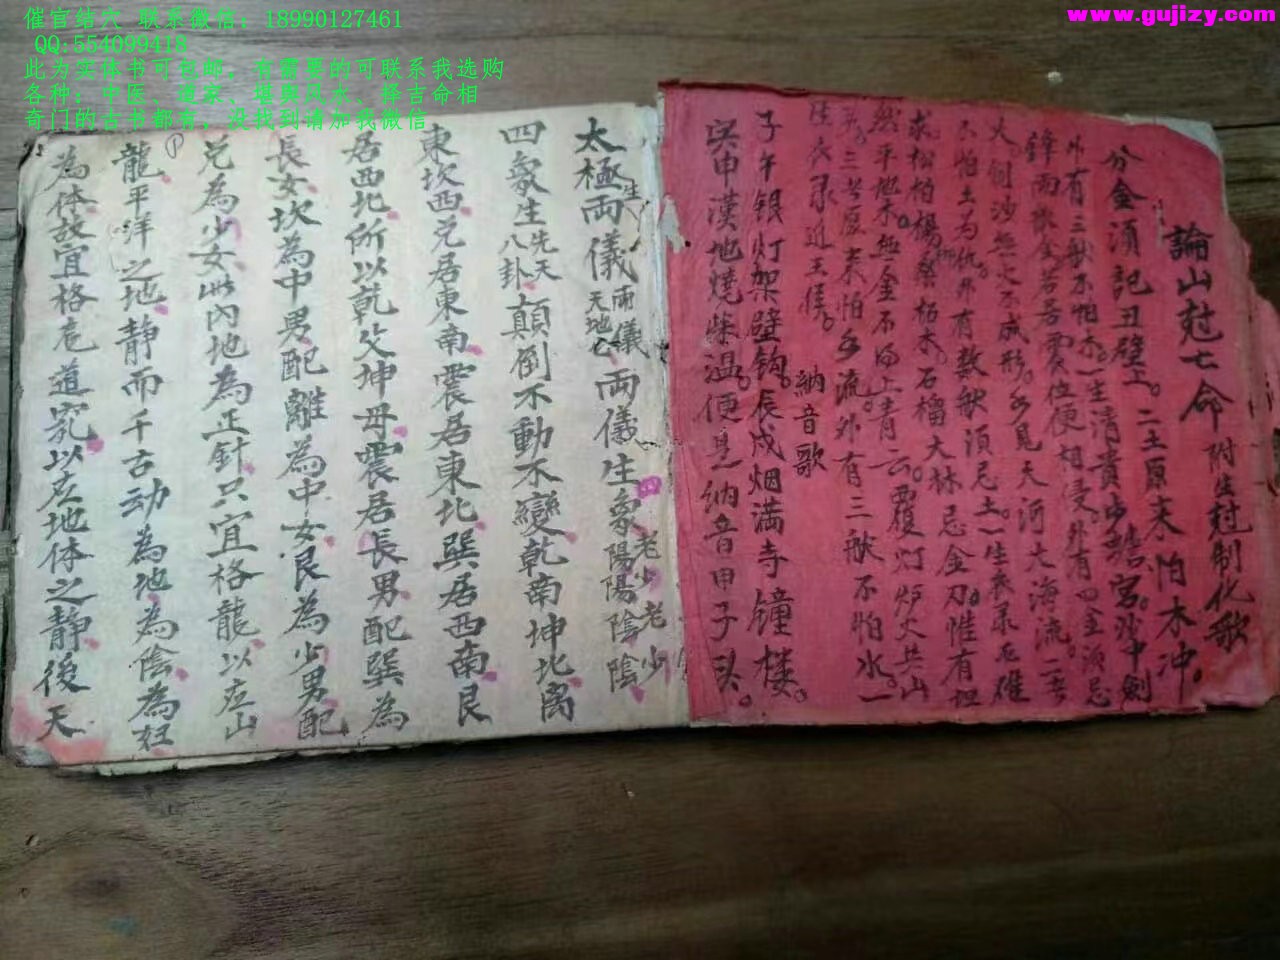 催官结穴 联系微信：18990127461
QQ:554099418
此为实体书可包邮，有需要的可联系我选购
各种：中医、道家、堪舆风水、择吉命相
奇门的古书都有，没找到请加我微信
www.gujizy.com
論山尅亡命附生尅制化歌
分金須記丑壁上。二土原来怕木冲。
外有三般不怕木。一生清貴步蟾宮。沙中劍
鋒兩般金若居震位便相侵。外有四金須忌
火。劍沙無火不成形。水見天河大海流。二者
不怕土為仇。外有数般須忌土。一生衣禄必难
求松柏楊柳桑柘木。石榴大林忌金刀。惟有坦
然平地木無金不得上青云。覆灯炉火共山
頭。三者原来怕水流外有三般不怕水。一
生衣录近王侯。
納音歌
子午银灯架壁鈎。辰戌烟满寺鐘楼。
寅申漢地燒柴温。便是納音甲子头。
太極生両儀両儀天地也両儀生四象陽陽陰陰老少老少
四象生八卦先天顛倒不動不變乾南坤北离
東坎西兌居東南震居東北巽居西南艮
居西北所以乾父坤母震居長男配巽為
長女坎為中男配離為中女艮為少男配
兌為少女此内地為正針只宜格龍以左山
龍平洋之地静而千古动為地為陰為妇
為体故宜格龙道究以左地体之静後天